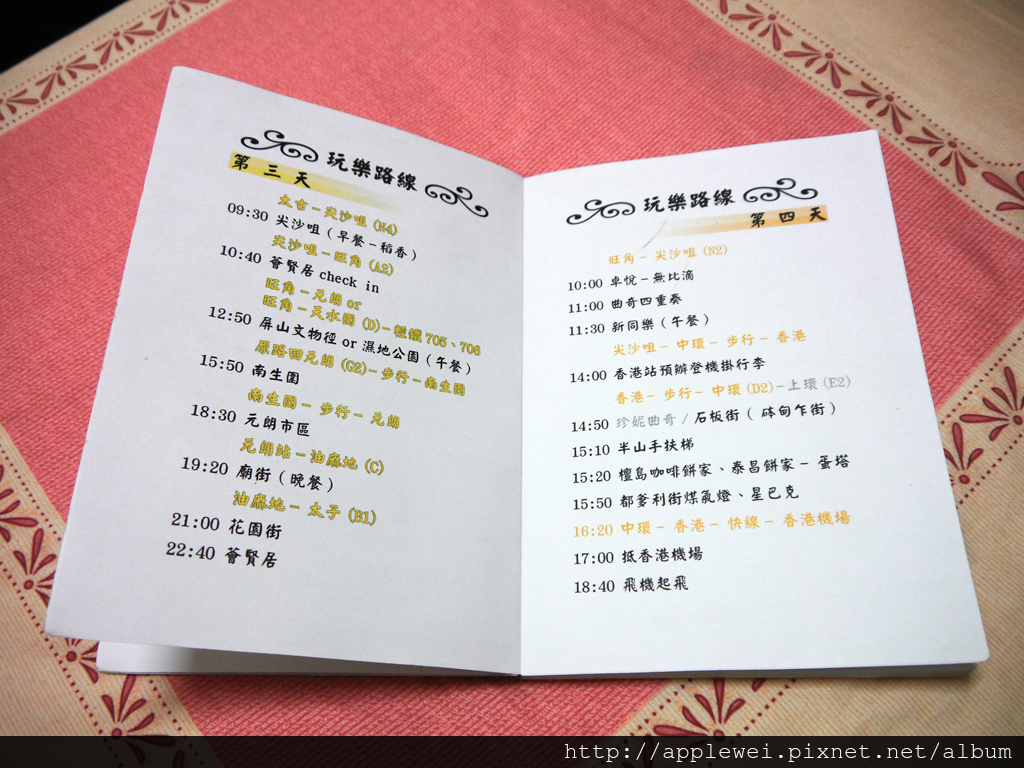 玩樂路線
第 三 天
太古－尖沙咀 (N4)
09:30 尖沙咀（早餐－稻香）
尖沙咀－旺角 (A2)
10:40 薈賢居 check in
旺角－元朗 or
旺角－天水圍 (D)－輕鐵 705、706
12:50 屏山文物徑 or 濕地公園（午餐）
原路回元朗 (G2)－步行－南生圍
15:50 南生圍
南生圍－ 步行－元朗
18:30 元朗市區
元朗站－油麻地 (C)
19:20 廟街（晚餐）
油麻地－ 太子 (B1)
21:00 花園街
22:40 薈賢居
玩樂路線
第 四 天
旺角－ 尖沙咀 (N2)
10:00 卓悅－無比滴
11:00 曲奇四重奏
11:30 新同樂（午餐）
尖沙咀－中環－ 步行－ 香港
14:00 香港站預辦登機掛行李
香港－ 步行－ 中環 (D2)－上環 (E2)
14:50 珍妮曲奇 / 石板街（ 砵甸乍街）
15:10 半山手扶梯
15:20 檀島咖啡餅家、泰昌餅家－ 蛋塔
15:50 都爹利街煤氣燈、星巴克
16:20 中環－ 香港－ 快線－ 香港機場
17:00 抵香港機場
18:40 飛機起飛
http://applewei.pixnet.net/album